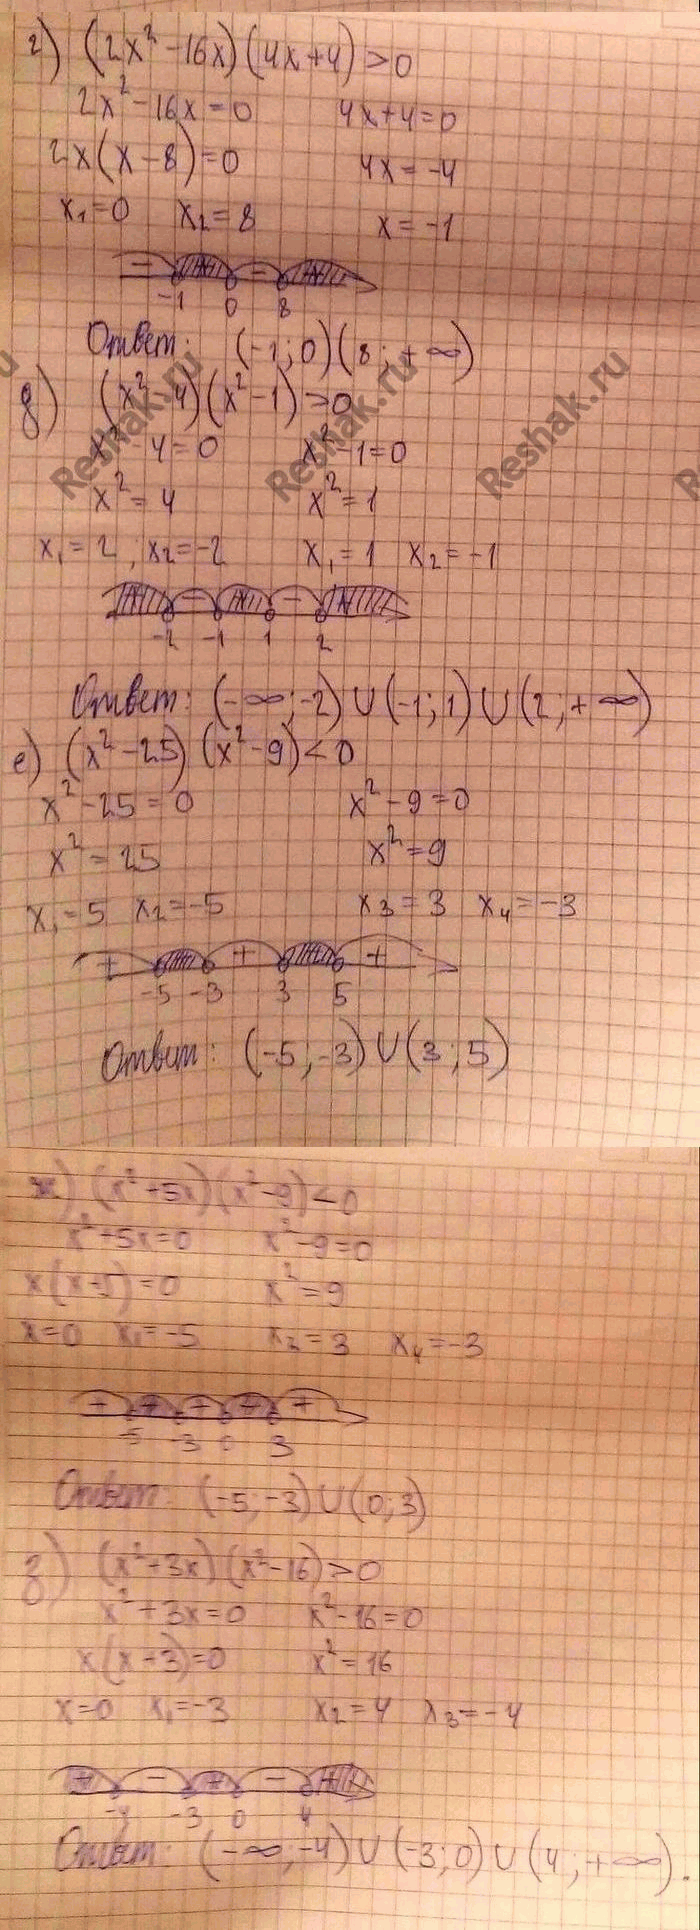 г) (2x² -16x)(4x+4)>0
2x²-16x=0 4x+4=0
2x(x-8)=0 4x=-4
x₁=0 x₂=8 x=-1
- + - +
-1 0 8
Ответ: (-1;0)(8;+∞)
д) (x²-4)(x²-1)>0
x²-4=0 x²-1=0
x²=4 x²=1
x₁=2; x₂=-2 x₁=1 x₂=-1
+ - + - +
-2 -1 1 2
Ответ: (-∞;-2)∪(-1;1)∪(2;+∞)
е) (x²-25)(x²-9)<0
x²-25=0 x²-9=0
x²=25 x²=9
x₁=5 x₂=-5 x₃=3 x₄=-3
+ + +
-5 -3 3 5
Ответ: (-5;-3)∪(3;5)
ж) (x²+5x)(x²-9)<0
x²+5x=0 x²-9=0
x(x+5)=0 x²=9
x=0 x₁=-5 x₃=3 x₄=-3
-5 -3 0 3
Ответ: (-5;-3)∪(0;3)
з) (x²+3x)(x²-16)>0
x²+3x=0 x²-16=0
x(x+3)=0 x²=16
x=0 x₁=-3 x₂=4 x₃=-4
+ - + - +
-4 -3 0 4
Ответ: (-∞;-4)∪(-3;0)∪(4;+∞).
Reshak.ru
Reshak.ru
Reshak.ru